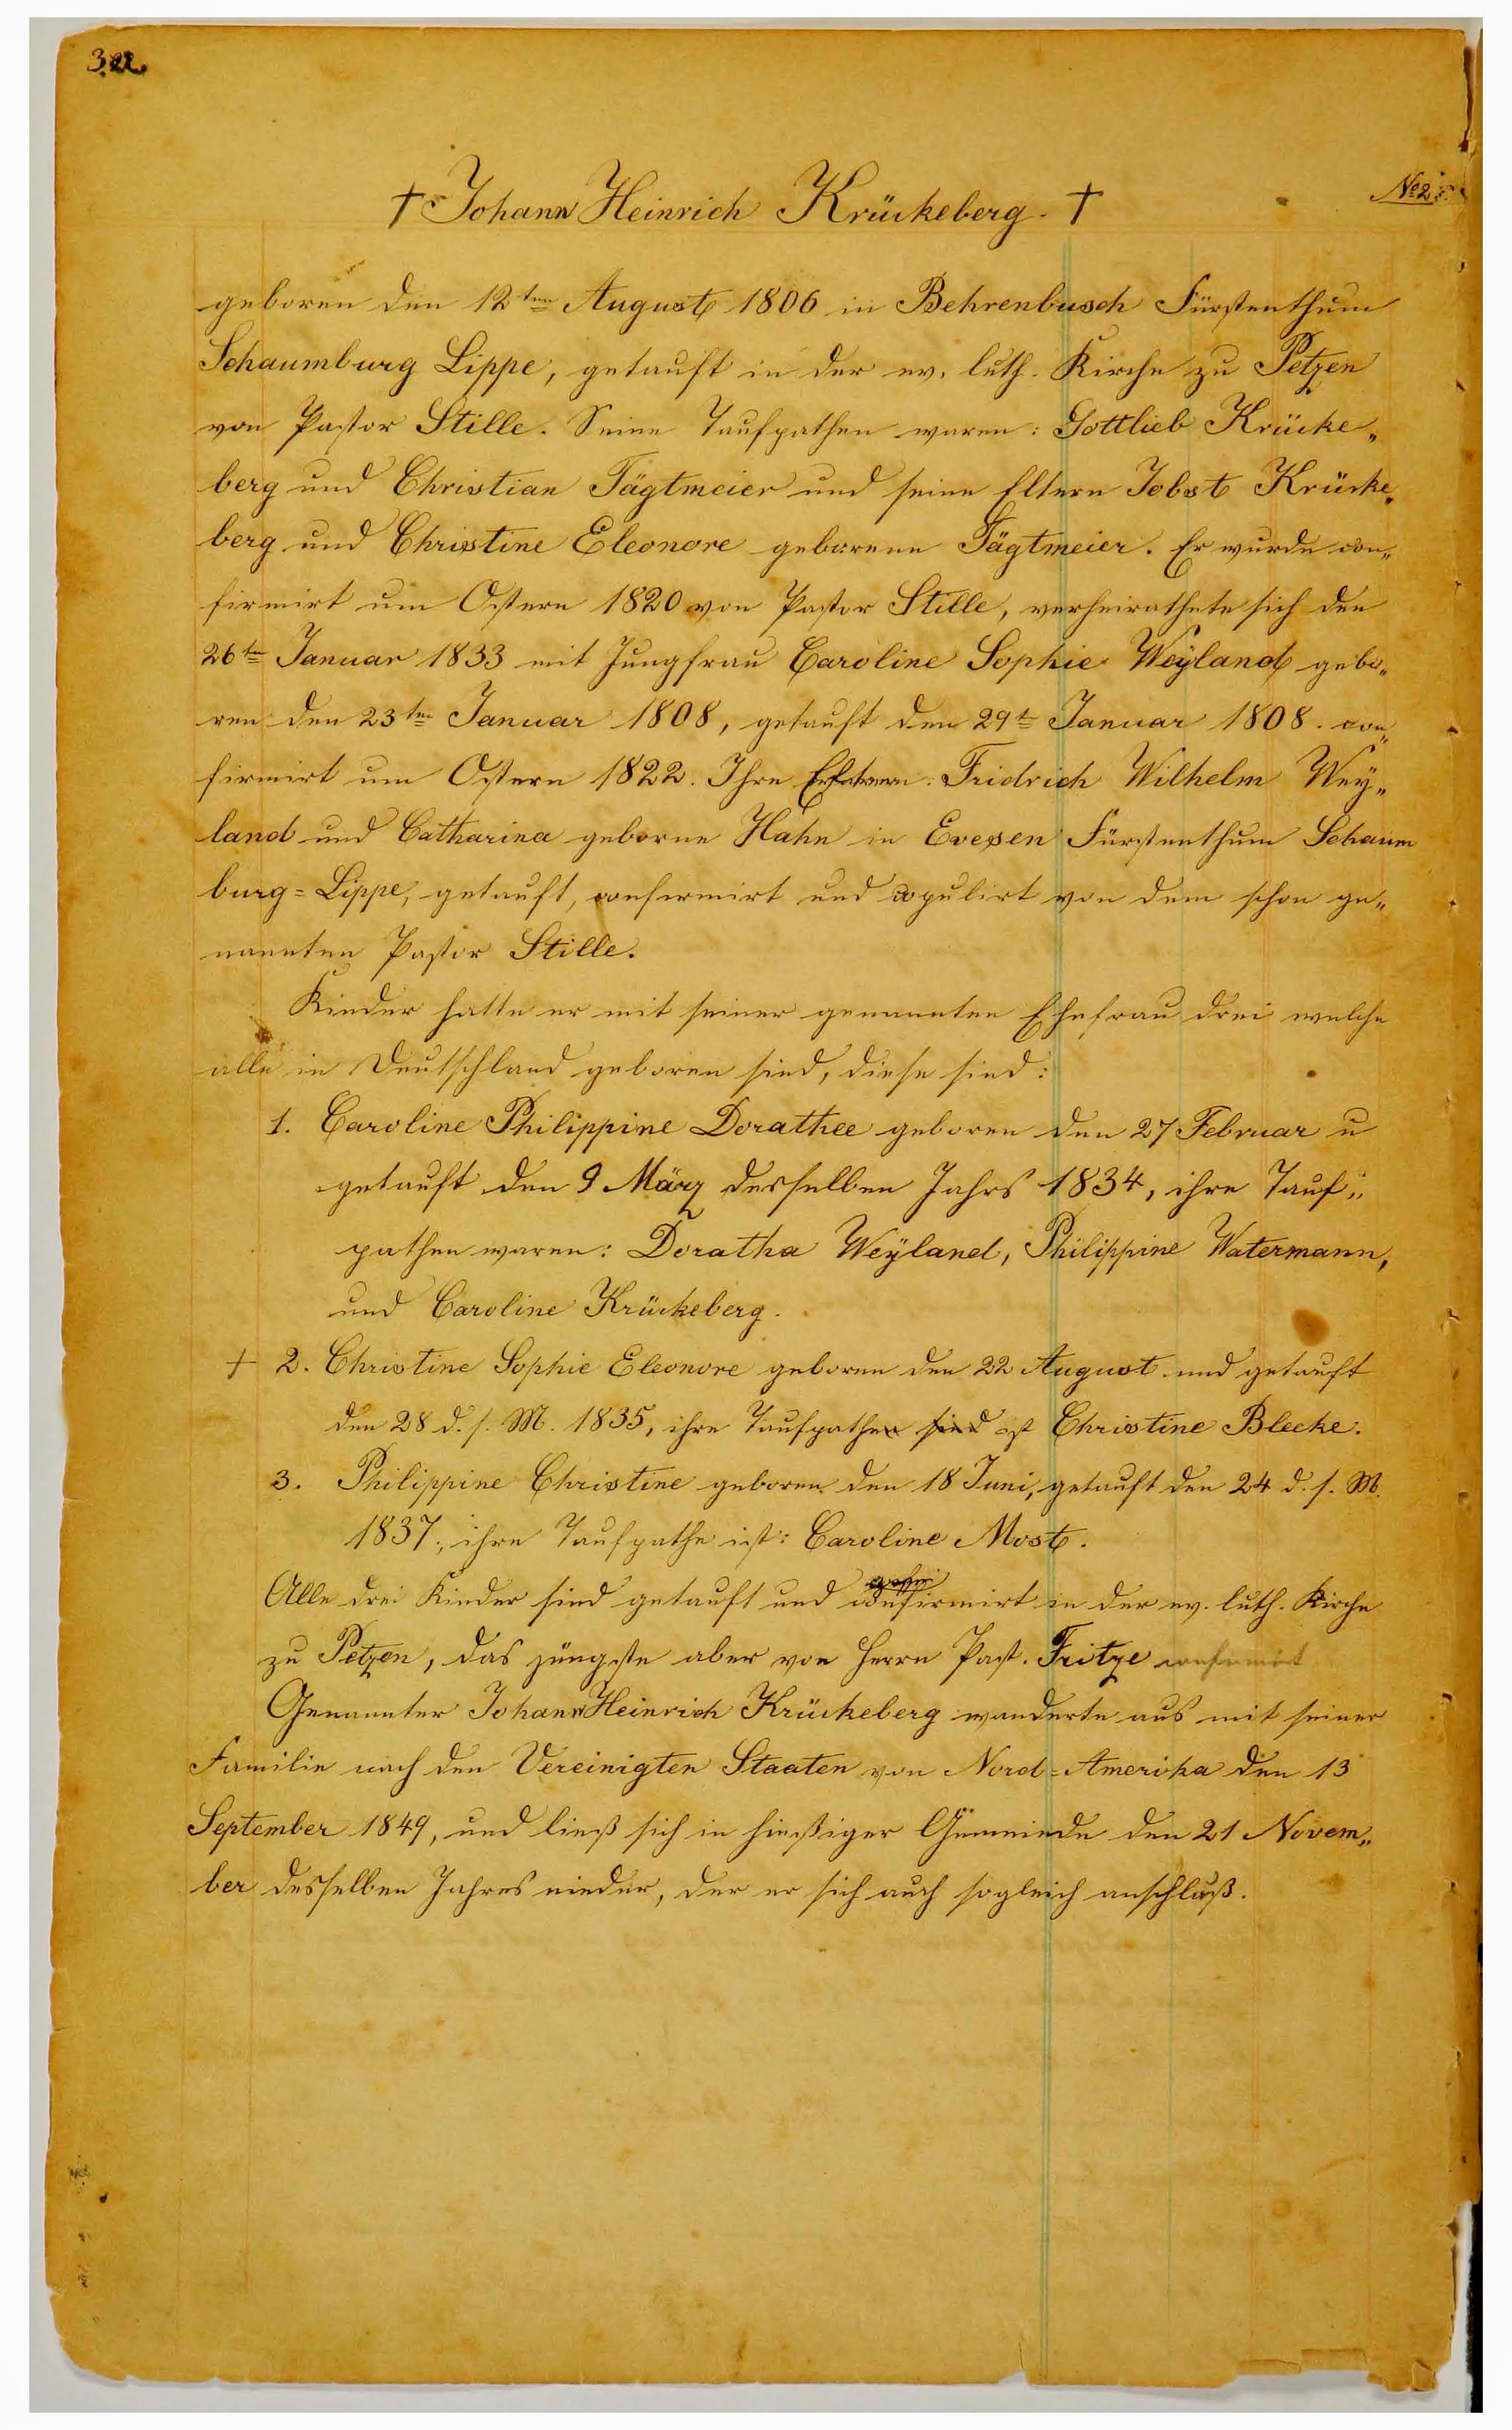 † Johann Heinrich Krückeberg. †
No 2
geboren den 12ten August 1806 in Behrenbusch Fürstenthum
Schaumburg Lippe, getauft in der ev. luth. Kirche zu Petzen
von Pastor Stille. Seine Taufpathen waren: Gottlieb Krücke„
berg und Christian Tägtmeier und seine Eltern Jobst Krücke„
berg und Christine Eleonore geborene Tägtmeier. Er wurde con„
firmirt um Ostern 1820 von Pastor Stille, verheirathete sich den
26ten Januar 1833 mit Jungfrau Caroline Sophie Weÿland gebo„
ren den 23ten Januar 1808, getauft den 29t Januar 1808. con„
firmirt um Ostern 1822. Ihre : Fridrich Wilhelm Weÿ„
land und Catharina geborne Hahn in Evesen Fürstenthum Schaum
burg=Lippe, getauft, confirmirt und copulirt von dem schon ge„
nannten Pastor Stille.
Kinder hatte er mit seiner genannten Ehefrau drei welche
alle in Deutschland geboren sind, diese sind:
1. Caroline Philippine Dorathee geboren den 27 Februar u
getauft den 9 März desselben Jahrs 1834, ihre Tauf„
pathen waren: Doratha Weÿland, Philippine Watermann,
und Caroline Krückeberg.
† 2. Christine Sophie Eleonore geboren den 22 August und getauft
den 28 d. s. M. 1835, ihre Taufpathen sind ist Christine Blecke.
3. Philippine Christine geboren den 18 Juni, getauft den 24 d. s. M.
1837., ihre Taufpathe ist: Caroline Most.
Alle drei Kinder sind getauft und confirmirt in der ev. luth. Kirche
zu Petzen, das jüngste aber von Herrn Past. Fritze confirmirt
Genannter Johann Heinrich Krückeberg wanderte aus mit seiner
Familie nach den Vereinigten Staaten von Nord=Amerika den 13
September 1849, und ließ sich in hiesiger Gemeinde den 21 Novem„
ber desselben Jahres nieder, der er sich auch sogleich anschluß.